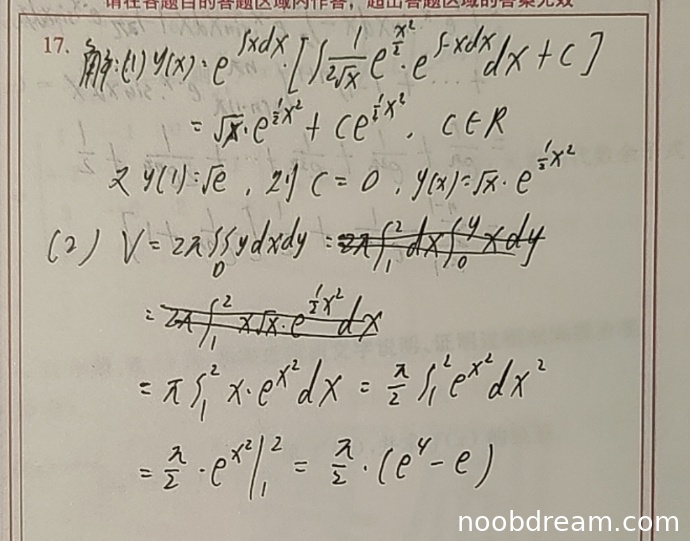 请在各题目的答题区域内作答，超出答题区域的答案无效
17. 解:(1) y(x)=e^{∫xdx}·[∫ 1/(2√x) e^{x²/2}·e^{∫-xdx}dx+C]
=√x·e^{½x²}+Ce^{½x²}, C∈R
又 y(1)=√e, 则 C=0, y(x)=√x·e^{½x²}
(2) V=2π∬_D ydxdy=2π∫₁²dx∫₀^y xdy
=2π∫₁² x√x·e^{½x²}dx
=π∫₁² x·e^{x²}dx=π/2 ∫₁² e^{x²}dx²
=π/2·e^{x²}|₁²=π/2·(e⁴-e)
noobdream.com